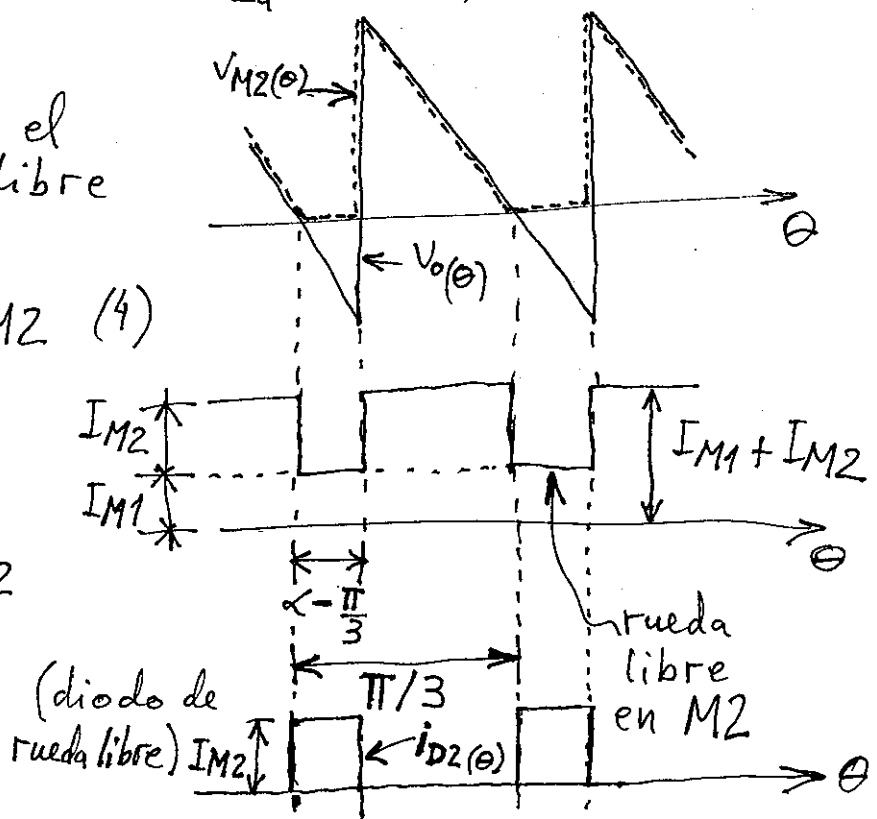 V_M2(θ)
el
libre
θ
V_o(θ)
M2 (4)
I_M2
I_M1 + I_M2
I_M1
θ
2
α - π/3
rueda
libre
en M2
π/3
(diodo de
rueda libre) I_M2
i_D2(θ)
θ